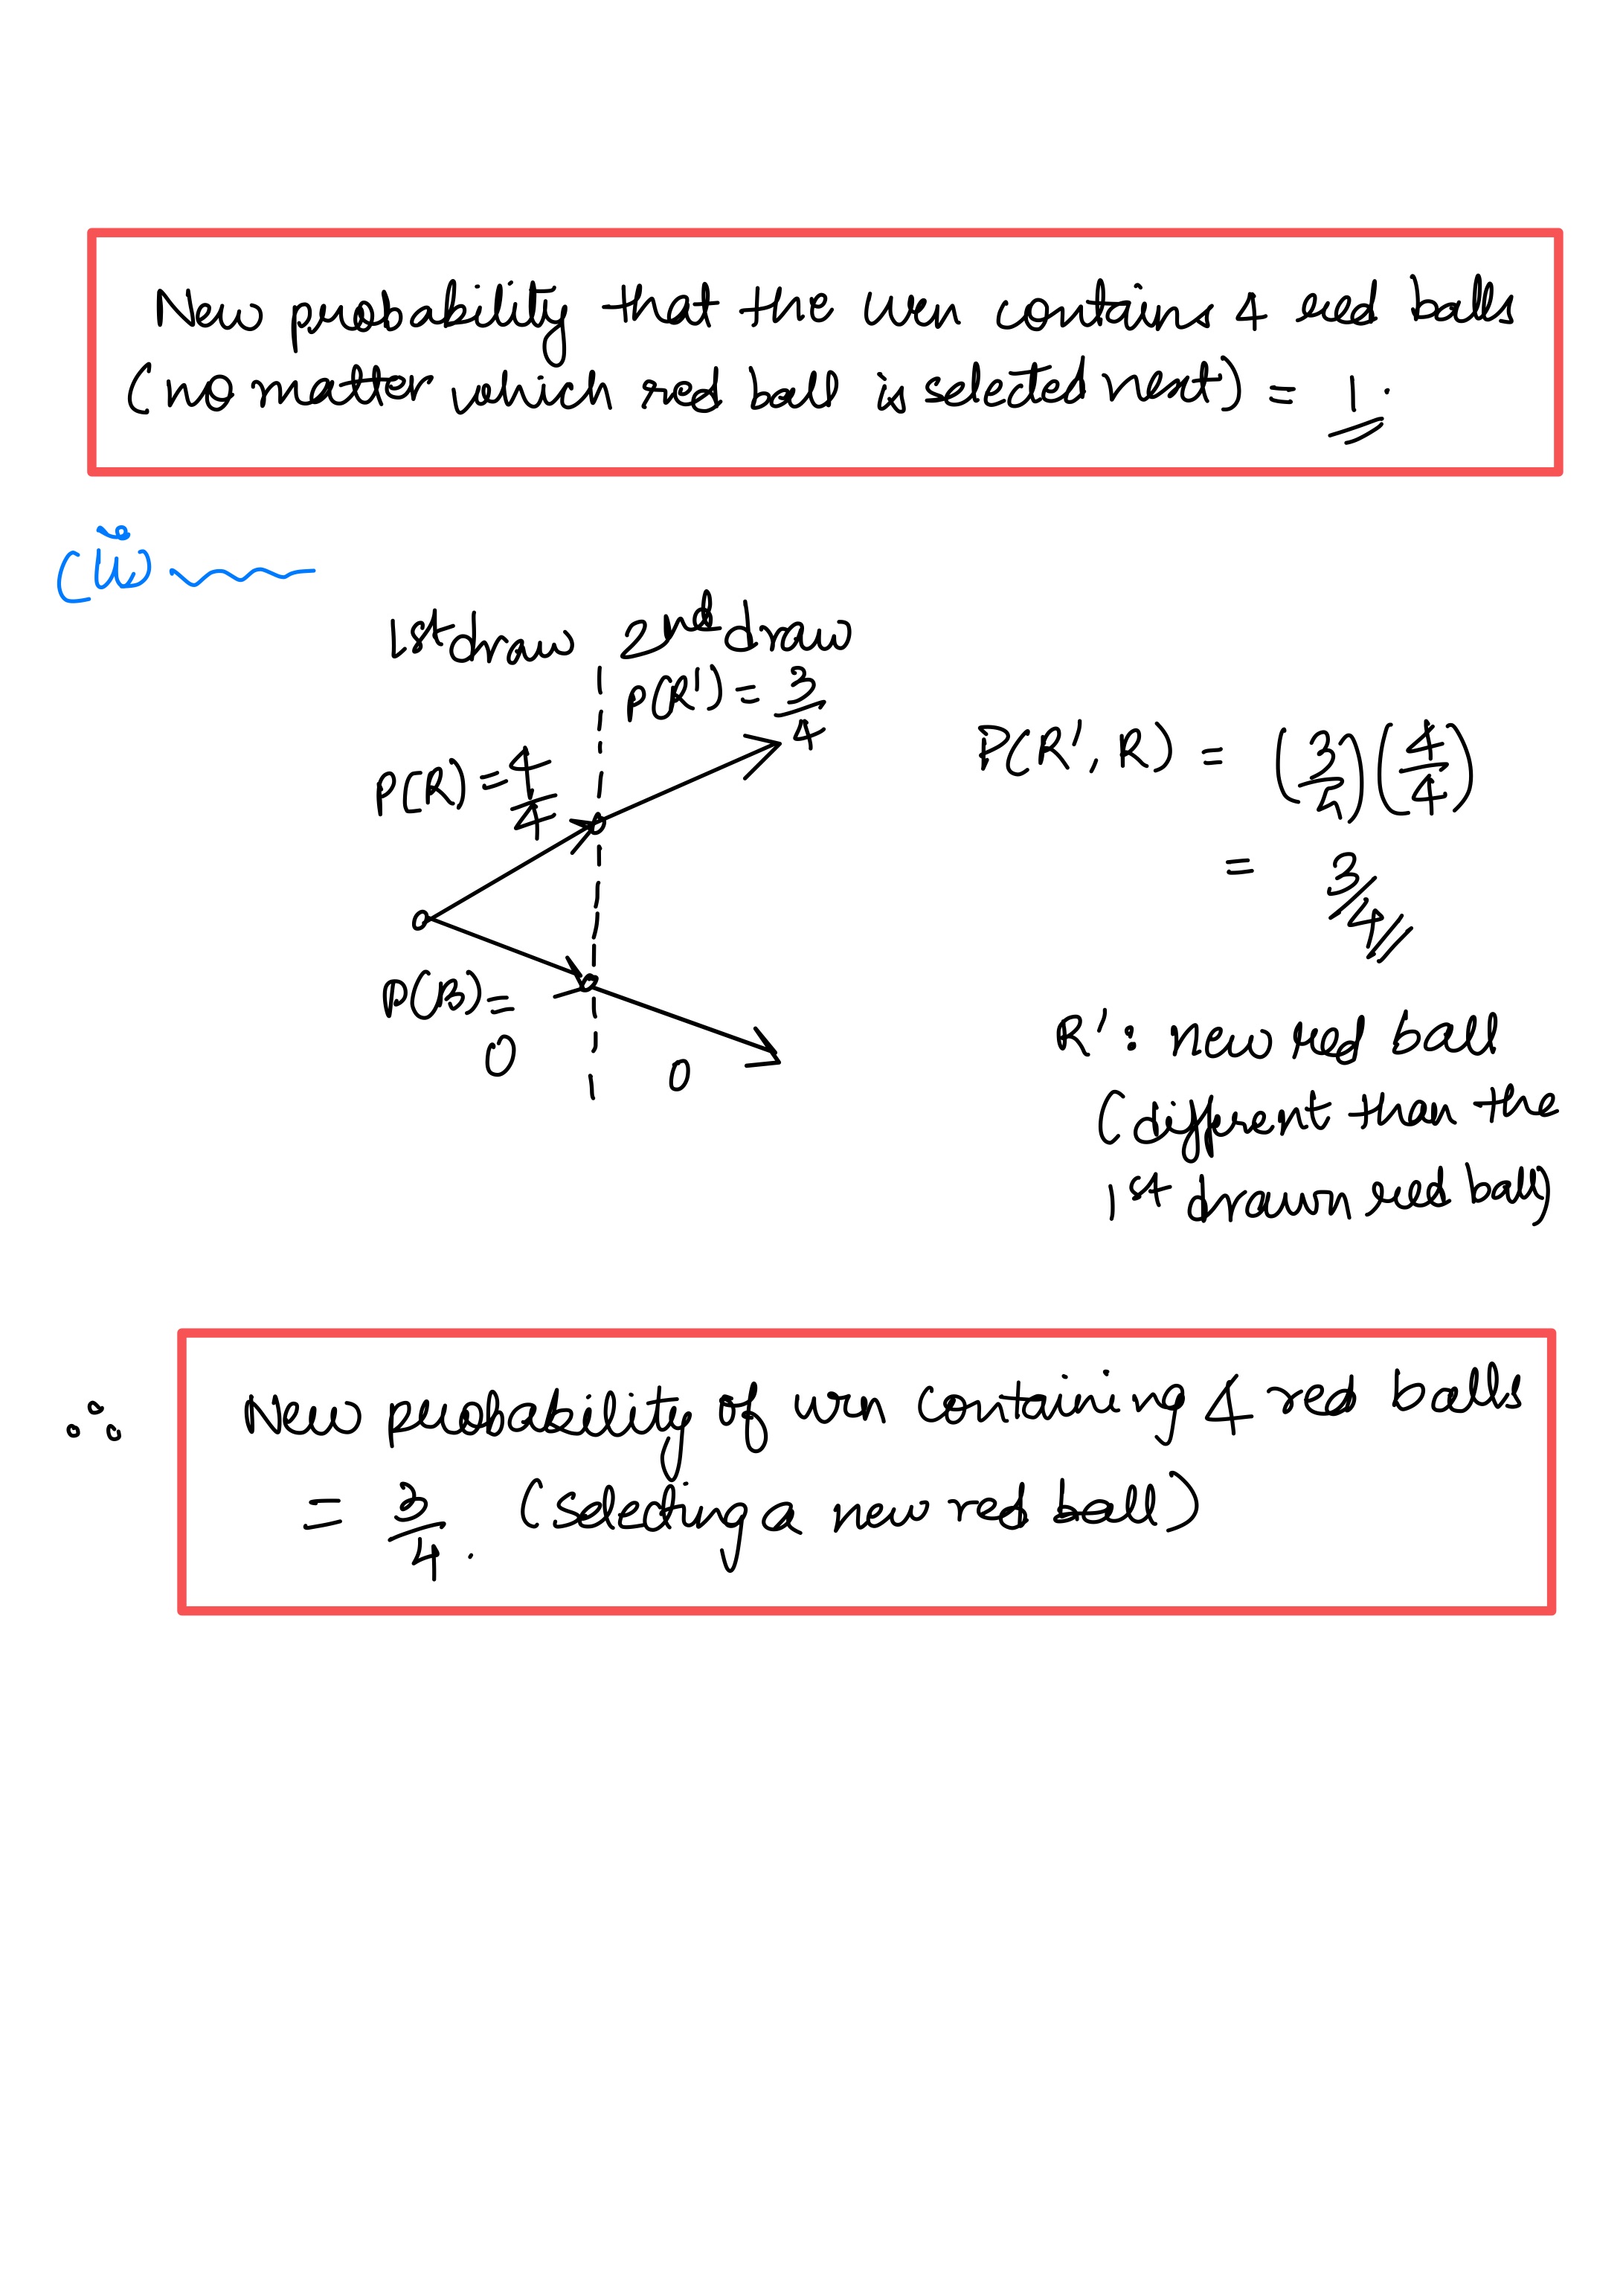 New probability that the urn contains 4 red balls
(no matter which red ball is selected next) = 1.
(ii)
1st draw 2nd draw
P(R') = 3/4
P(R) = 4/4
P(R', R) = (3/4)(4/4)
= 3/4
P(B) =
0
0
R': new red ball
(different than the
1st drawn red ball)
∴ New probability of urn containing 4 red balls
= 3/4. (selecting a new red ball)